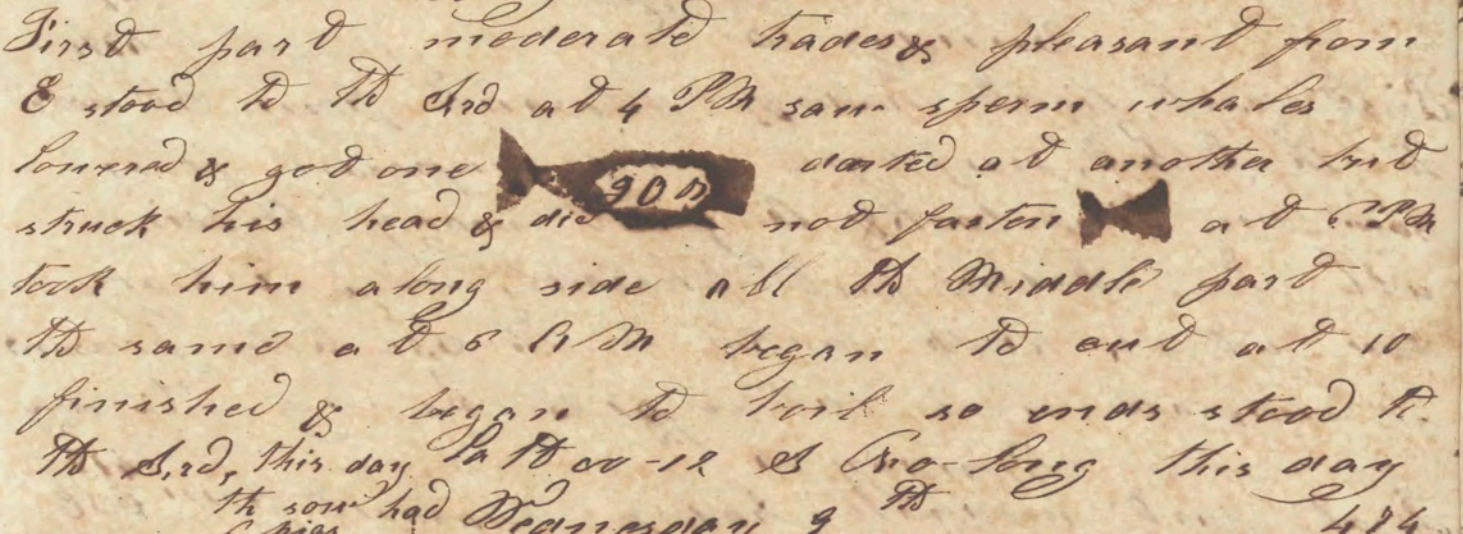 First part moderate trades & pleasant from
E stood to th Srd at 4 PM saw sperm whales
lowered & got one darted at another but
struck his head & did not fasten at 6 PM
took him along side all th Middle part
th same at 6 AM began to cut at 10
finished & began to boil so ends stood to
th Srd, this day Latt 00-12 S Cro-Long this day
th sow had Wednesday 9 th